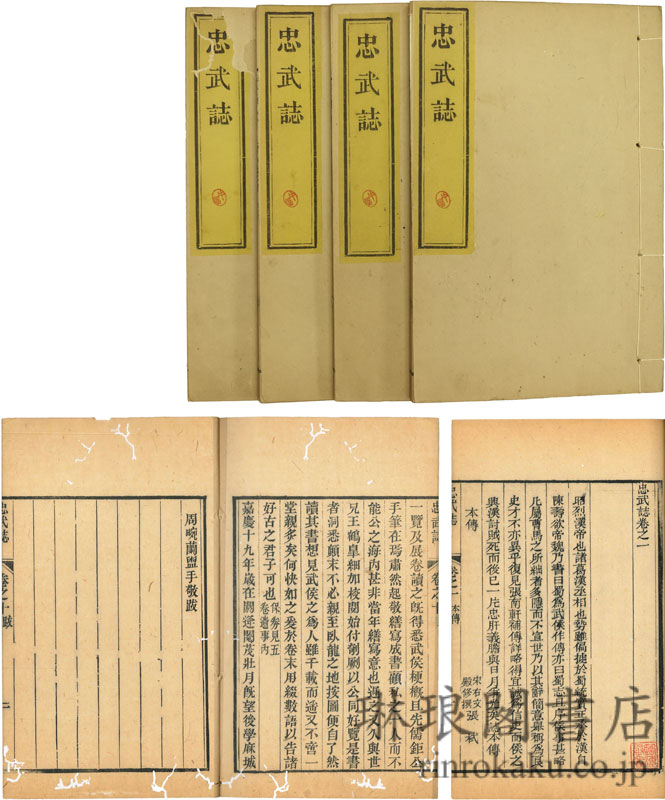 忠武誌
忠武誌
忠武誌
忠武誌
忠武誌卷之一
昭烈漢帝也諸葛漢丞相也勢雖偏據於蜀統實正承於漢自
陳壽欲帝魏乃書曰蜀爲武侯作傳亦曰蜀志且序侯事甚略
凡屬曹馬之所絀者多隱而不宣世乃以其辭簡意舉稱爲良
史才不亦異乎復見張南軒補傳詳略得宜誠爲信史而侯之
興漢討賊死而後已一片忠肝義膽與日月
本傳
宋右文
殿修撰
張栻
忠武誌
卷之一
本傳
忠武誌
卷之十
一覽及展卷讀之旣得悉武侯梗槪且先儒鉅公
手筆在焉肅然起敬繕寫成書顧私之一人而不
能公之海內甚非當年繕寫意也遲之又久與世
兄王鶴皐細加校閱始付剞劂以公同好覽是書
者洞悉顛末不必親至臥龍之地按圖便自了然
讀其書想見武侯之爲人雖千載而遙又不啻一
堂親炙矣何快如之爰於卷末用綴數語以告諸
好古之君子可也
見五
卷遺事內
嘉慶十九年歲在閼逢閹茂壯月旣望後學麻城
周畹蘭盥手敬跋
忠武誌
卷之十
跋
二
琳琅閣書店
rinrokaku.co.jp